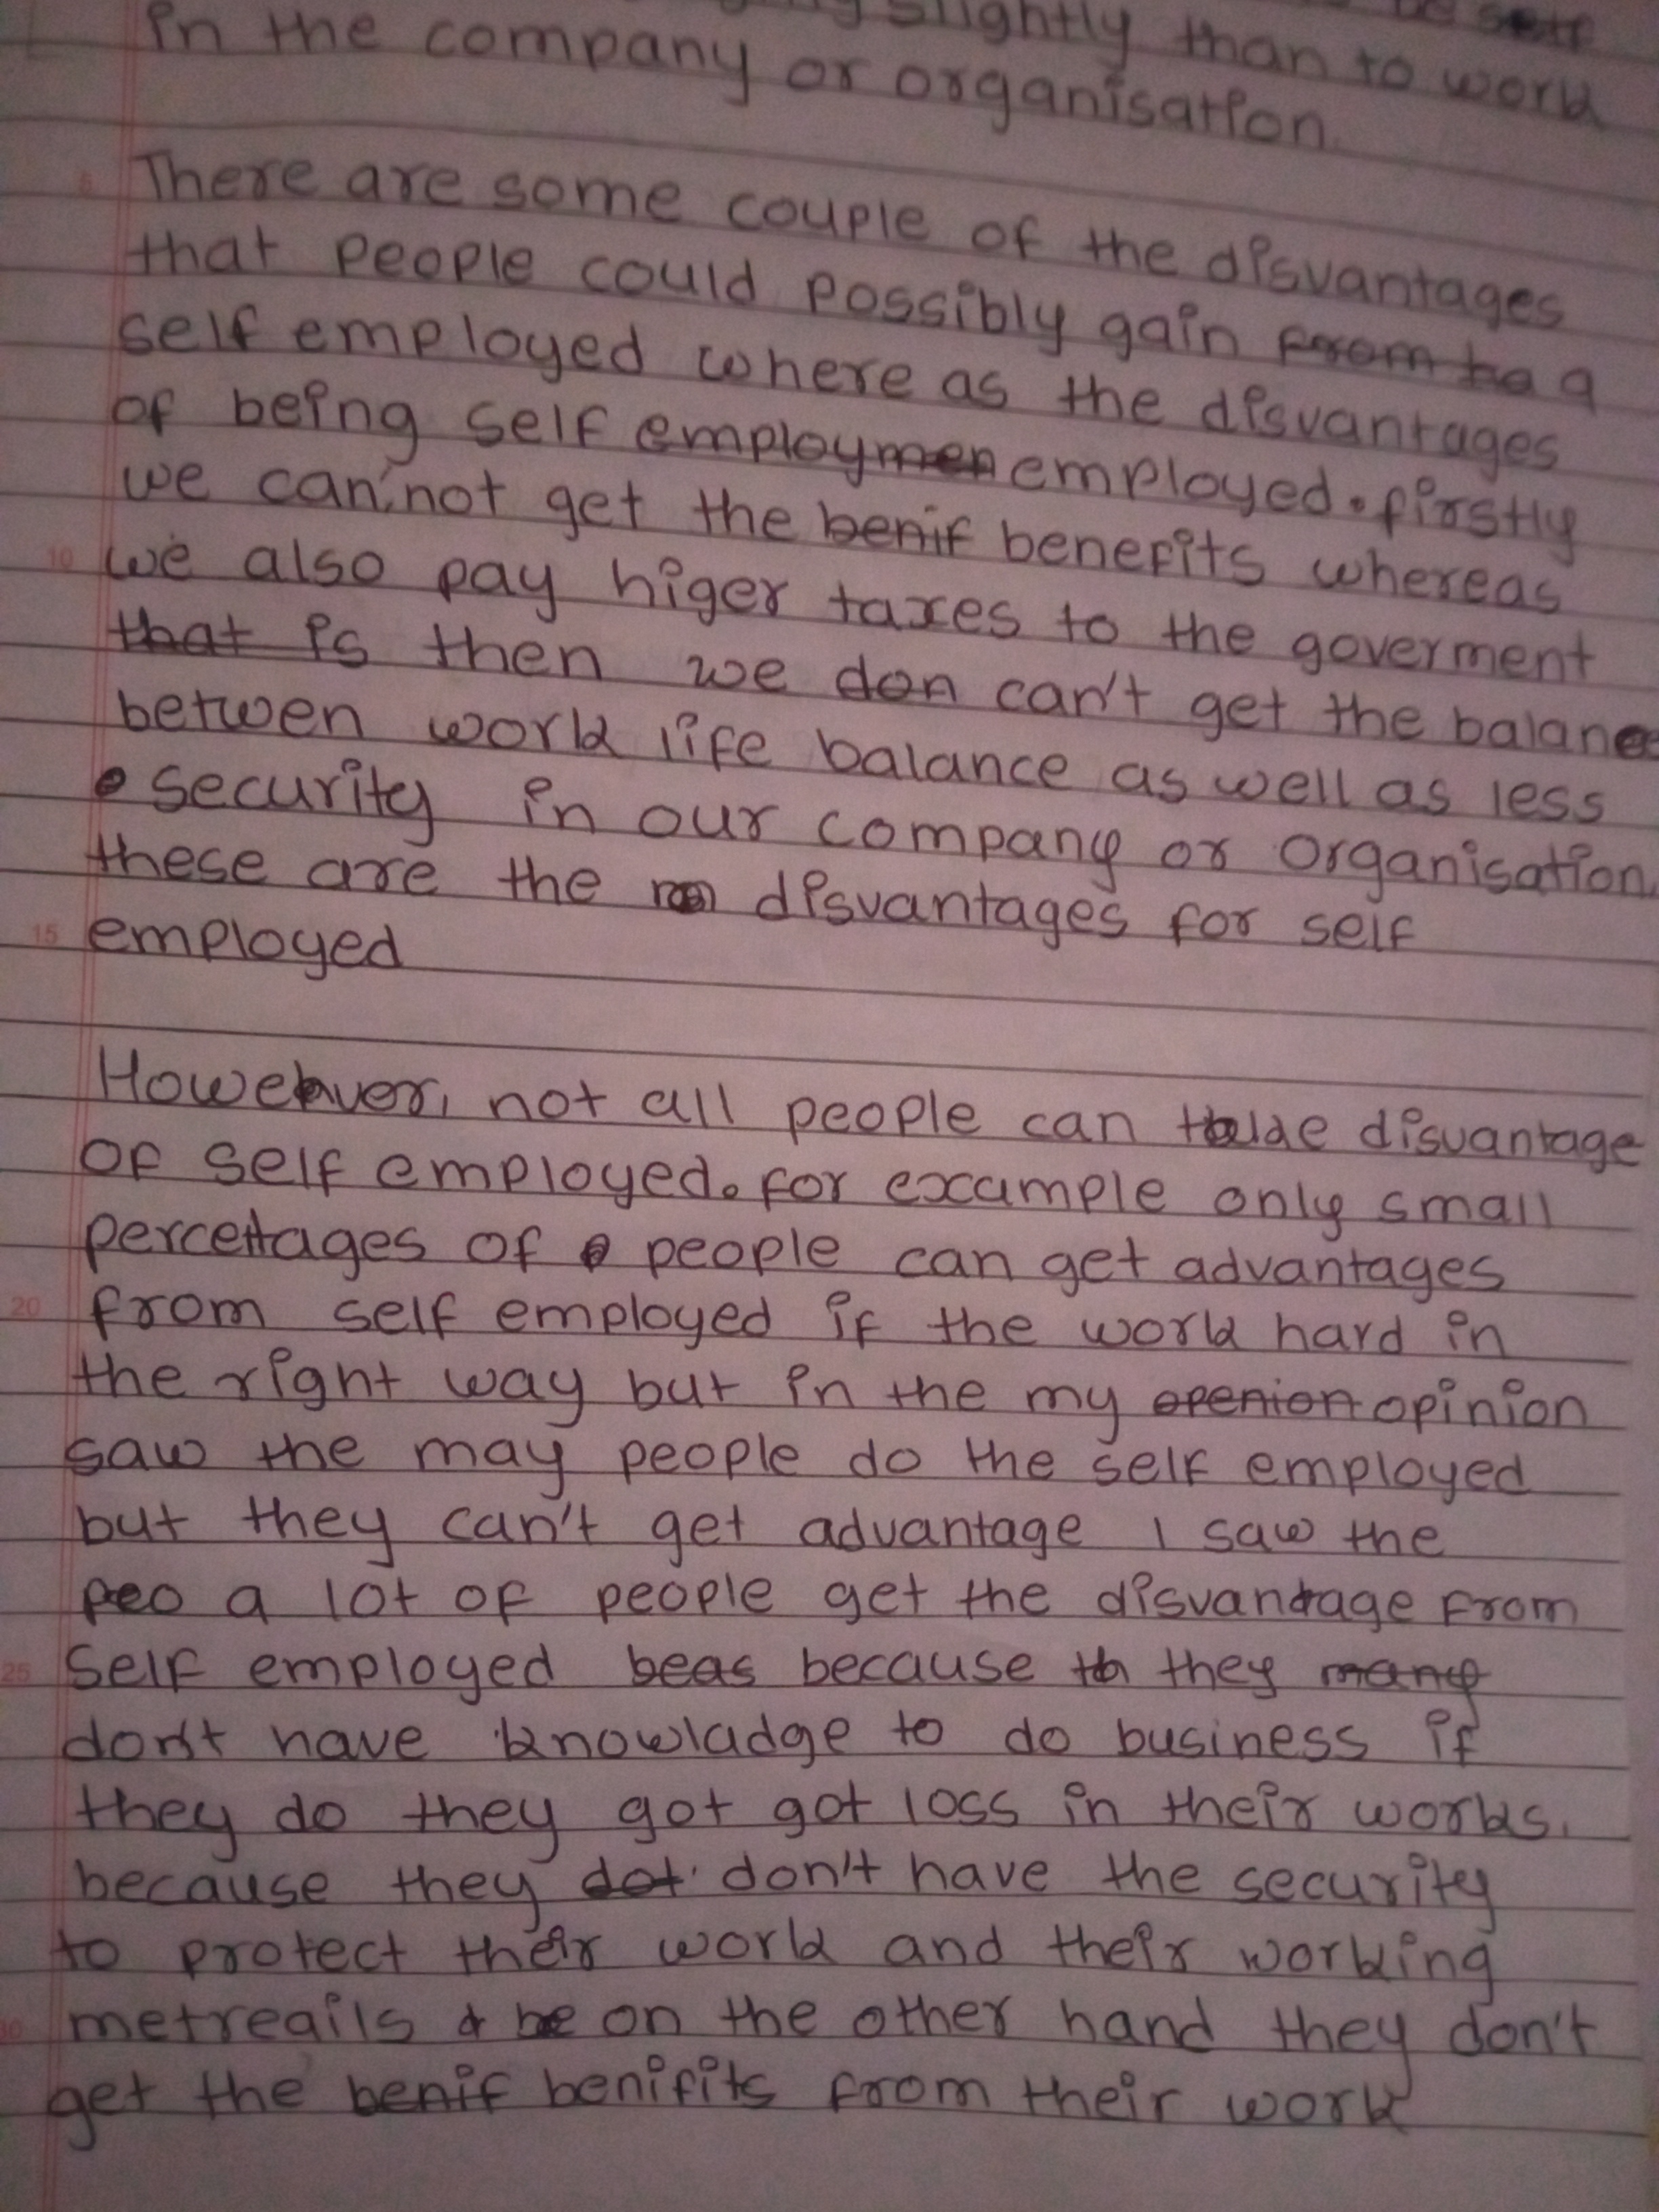 slightly than to work
in the company or organisation.
There are some couple of the disvantages
that people could possibly gain from to a
self employed where as the disvantages
of being self employmen employed. firstly
we can not get the benif benefits whereas
we also pay higer taxes to the goverment
that is then we don can't get the balane
betwen work life balance as well as less
security in our company or organisation.
these are the disvantages for self
employed
However, not all people can take disvantage
of self employed. for example only small
percentages of people can get advantages
from self employed if the work hard in
the right way but in the my openion opinion
saw the may people do the self employed
but they can't get advantage I saw the
peo a lot of people get the disvantage from
self employed beas because th they many
don't have knowladge to do business if
they do they got got loss in their works.
because they dot don't have the security
to protect their work and their working
metreails & be on the other hand they don't
get the benif benifits from their work